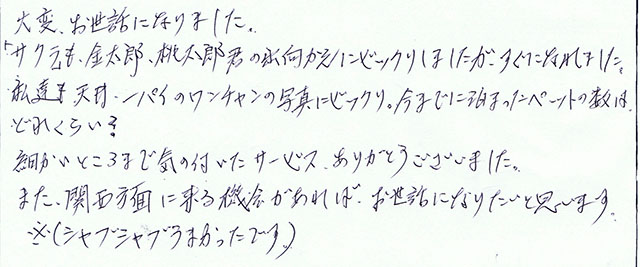 大変、お世話になりました。
「サクラも、金太郎、桃太郎君のお向かえにビックリしましたが、すぐになれました。
私達も天井、一パイのワンチャンの写真にビックリ。今までに泊まったペットの数は
どれくらい?
細かいところまで気の付いたサービス、ありがとうございました。
また、関西方面に来る機会があれば、お世話になりたいと思います。
※(シャブシャブうまかったです。)